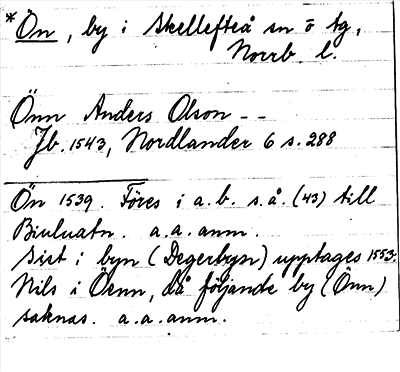 *Ön, by i Skellefteå sn o tg,
Norrb. l.
Önn Anders Olson - -
Jb. 1543, Nordlander 6 s. 288
Ön 1539. Föres i a.b. s.å. (43) till
a.a. anm.
Sist i byn (Degerbyn) upptages 1553.
Nils i Öenn, då följande by (Önn)
saknas. a.a. anm.